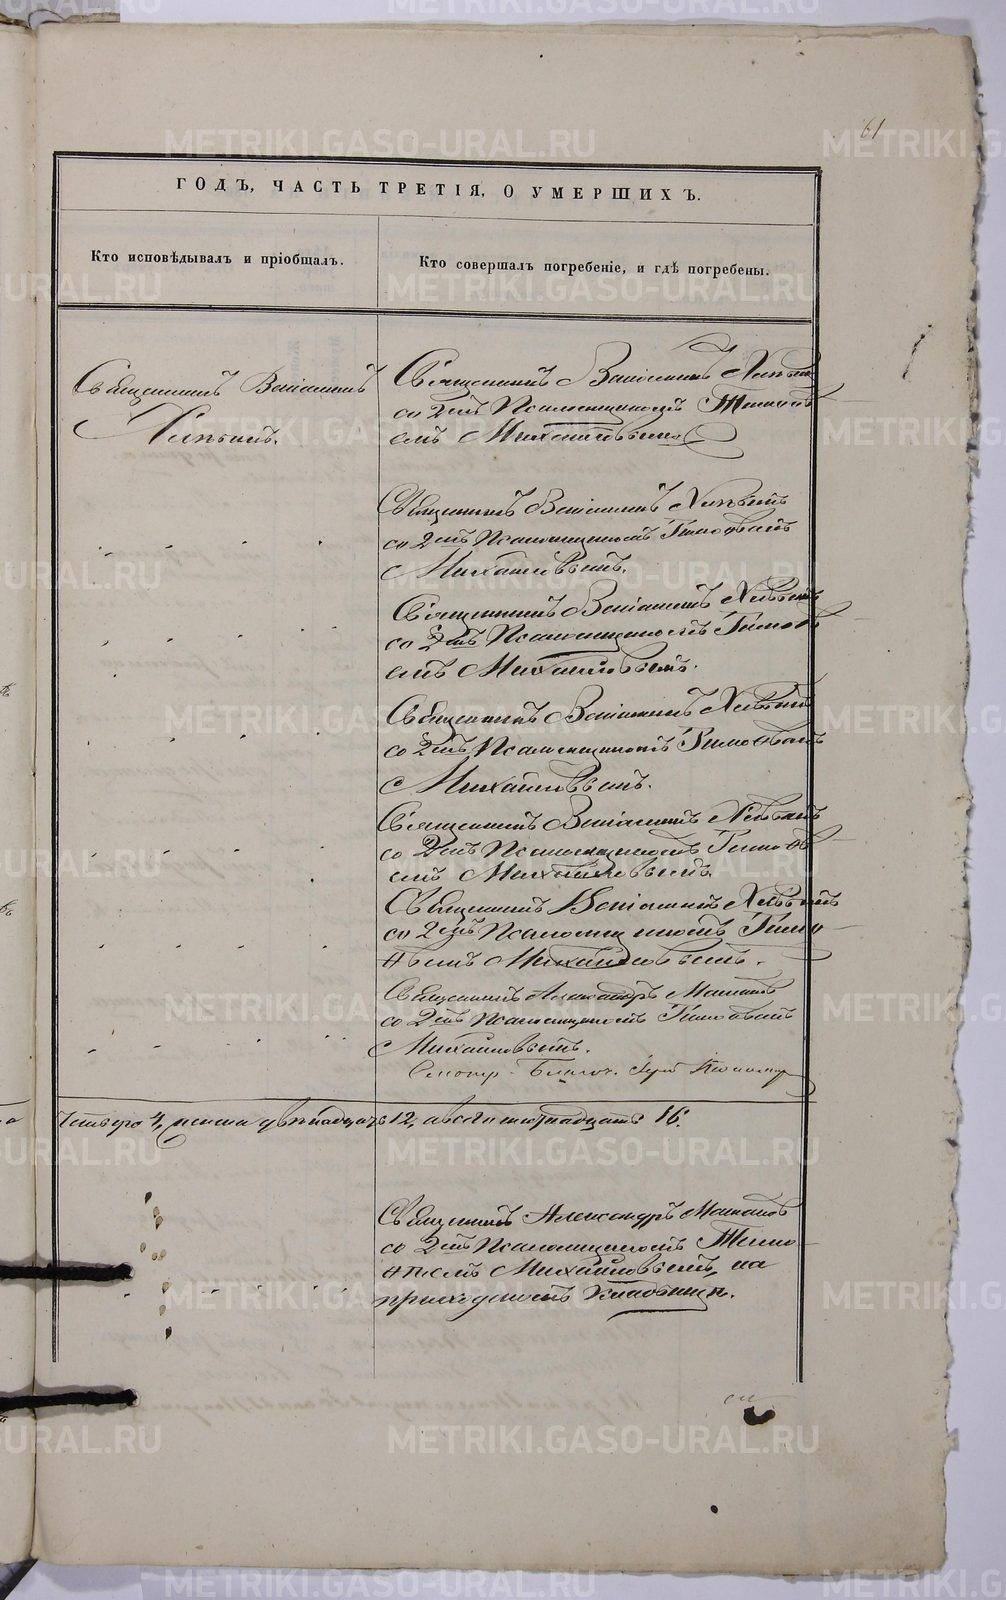 61
ГОДЪ, ЧАСТЬ ТРЕТІЯ, О УМЕРШИХЪ.
Кто исповѣдывалъ и пріобщалъ.
Кто совершалъ погребеніе, и гдѣ погребены.
Священникъ Веніаминъ
Священникъ Веніаминъ
со 2мъ Псаломщикомъ Тимоѳе
емъ Михайловскимъ
Священникъ Веніаминъ
со 2мъ Псаломщикомъ Тимоѳеемъ
Михайловскимъ.
Священникъ Веніаминъ
со 2мъ Псаломщикомъ Тимоѳе
емъ Михайловскимъ.
Священникъ Веніаминъ
со 2мъ Псаломщикомъ Тимоѳеемъ
Михайловскимъ.
Священникъ Веніаминъ
со 2мъ Псаломщикомъ Тимоѳе
емъ Михайловскимъ.
Священникъ Веніаминъ
со 2мъ Псаломщикомъ Тимо
ѳеемъ Михайловскимъ.
Священникъ Александръ
со 2мъ Псаломщикомъ Тимоѳеемъ
Михайловскимъ.
4, женска двѣнадцать 12, а всего шестнадцать 16.
Священникъ Александръ
со 2мъ Псаломщикомъ Тимо
ѳеемъ Михайловскимъ, на
приходскомъ кладбищѣ.
METRIKI.GASO-URAL.RU